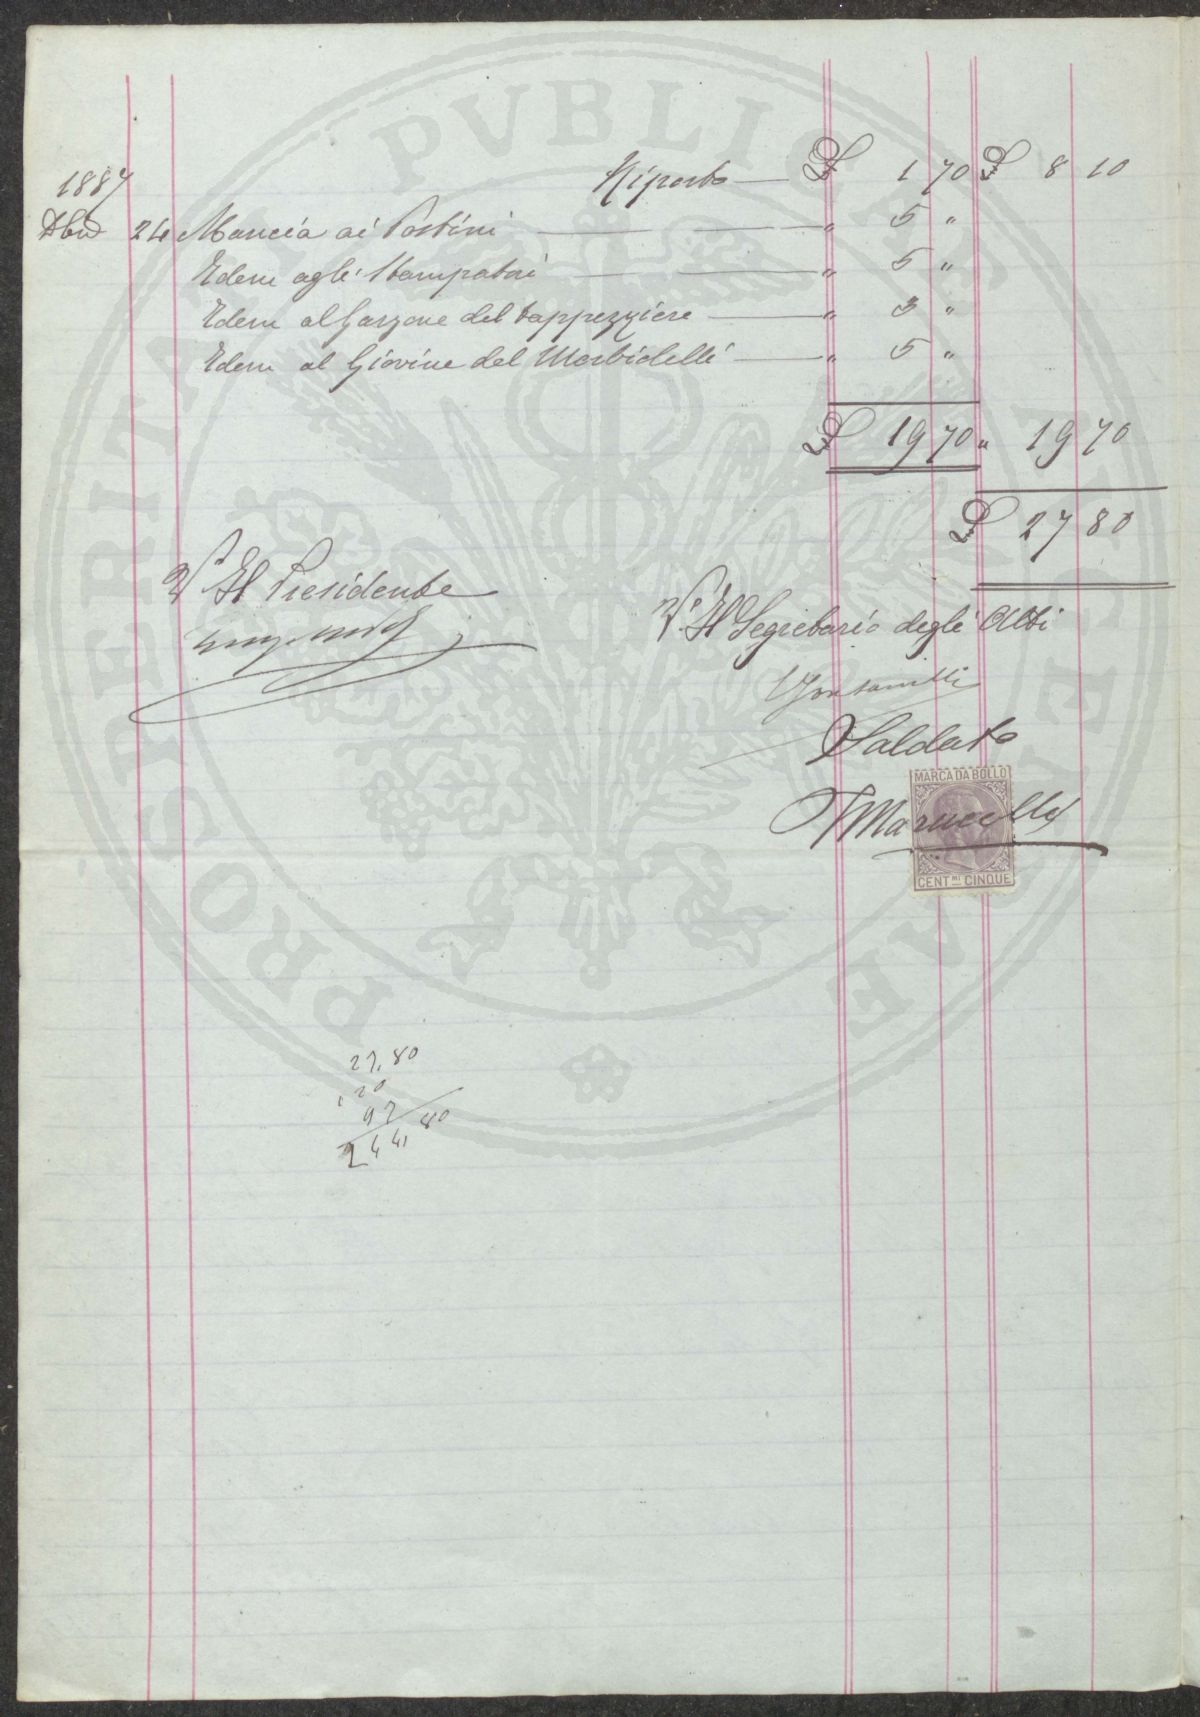 1887
Riporto — £ 1 70 £ 8 10
Dbre 24 Mancia ai Postini — " 5 "
Idem agli Stampatori — " 5 "
Idem al Garzone del tappezziere — " 3 "
Idem al Giovine del Morbidelli — " 5 "
£ 19 70 " 19 70
£ 27 80
V° Il Presidente
V° Il Segretario degli Atti
Saldato
MARCA DA BOLLO
Marucelli
CENT.MI CINQUE
27,80
120
97
244,80
PROSPERITATI PVBLICAE AVGENDAE